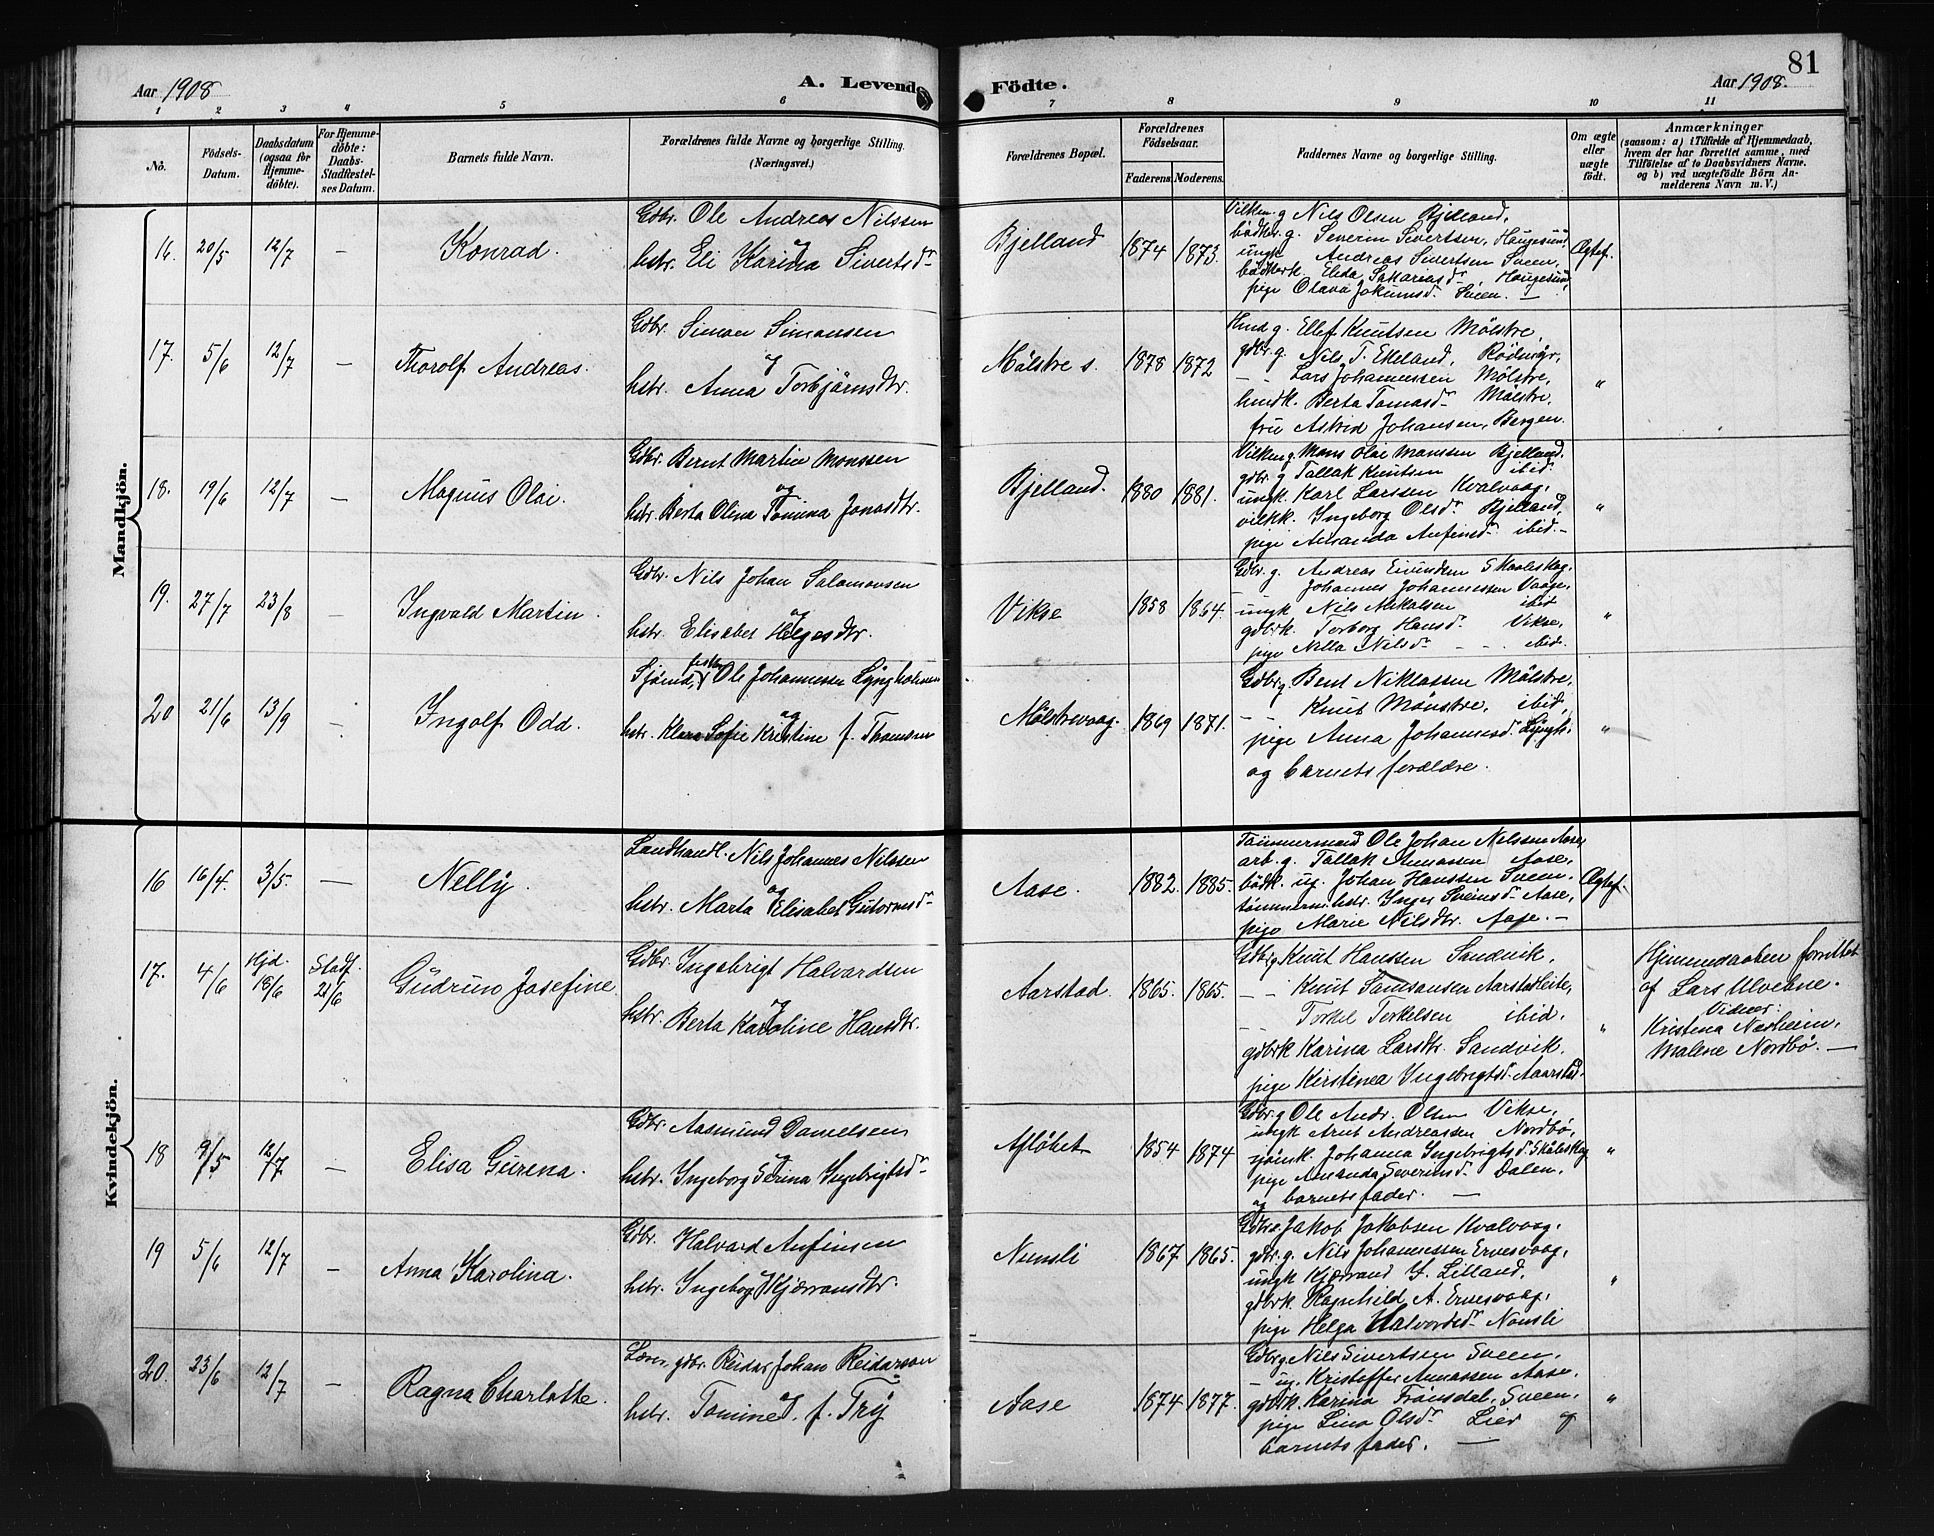 81
Aar 1908
A. Levende Födte.
Aar 1908.
1 2 3 4 5 6 7 8 9 10 11
No.
Födsels-Datum.
Daabsdatum (ogsaa for Hjemme-döbte).
For Hjemme-döbte: Daabs-Stadfæstel-ses Datum.
Barnets fulde Navn.
Forældrenes fulde Navne og borgerlige Stilling. (Næringsvei.)
Forældrenes Bopæl.
Forældrenes Födselsaar.
Faderens. Moderens.
Faddernes Navne og borgerlige Stilling.
Om ægte eller uægte födt.
Anmærkninger
(saasom: a) i Tilfælde af Hjemmedaab,
hvem der har forrettet samme, med
Tilföielse af to Daabsvidners Navne.
og b) ved uægtefödte Börn An-
melderens Navn m. V.)
Mandkjön.
16. 20/5 12/7 —
Konrad.
Gdbr. Ole Andreas Nilssen
og
hstr. Eli Karina Sivertsdr
Bjelland 1874 1873.
Nils Olsen Bjelland,
bødker g. Severin Sivertsen, Haugesund,
ungk. Andreas Sivertsen Sveen,
bødkerk. Elida Sakariasdr Haugesund,
pige Olava Jokumsd. Sveen. —
Ægtef.
17. 5/6 12/7 —
Thorolf Andreas.
Gdbr. Simon Simonsen
og
hstr. Anna Torbjørnsdtr.
Mølstre s. 1878 1872
Hmd g. Ellef Knutsen Mölstre,
gdbr. g. Nils T. Ekeland,
— - Lars Johannessen Mölstre,
hmdk. Berta Tomasdr Mölstre,
fru Astrid Johansen, Bergen.
"
18. 19/6 12/7 —
Magnus Olai.
Gdbr. Bernt Martin Monssen
og
hstr. Berta Olina Tomina Jonasdtr.
Bjelland. 1880 1881.
Mons Olai Monssen Bjelland.
gdbr. g Tallak Knutsen ibid.
ungk. Karl Larssen Kvalvaag,
vilkk. Ingeborg Olsdr Bjelland,
pige Amanda Anfinsdr ibid. —
"
19. 27/7 23/8 —
Ingvald Martin.
Gdbr. Nils Johan Salamonsen
og
hstr. Elisabet Helgesdtr.
Vikse 1858 1864.
Gdbr. g. Andreas
- Johannes Johannessen Vaage,
ungk Nils Mikalsen ibid
gdbrk. Torborg Hansd. Vikse,
pige Nilsdr - - ibid.
"
20 21/6 13/9 -
Ingolf Odd.
Sjømd, Ole Johannessen Lyngholmen
og
hstr. Klara Sofie Kristine f. Thomsen
Mølstrevaag. 1869 1871.
Gdbr g. Bent Niklassen Mölstre,
- Knut ibid,
pige Anna Johannesd. Lyngh.
og barnets forældre.
"
Kvindekjön.
16 16/4. 3/5. —
Nelly.
Landhandl. Nils Johannes Nilssen
og
hstr. Marta Elisabet Gutormsdr
Aase. 1882. 1885.
Tömmermand Ole Johan Nilssen Aase,
arb. g. Tallak Aase,
bødk. ug. Johan Hanssen Sveen,
tömmerm. hstr. Inger Sveinsdr Aase,
pige Marie Nilsdtr. Aase. —
Ægtef.
17. 4/6 Hjd. 18/6 Stadf. 21/6
Gudrun Josefine.
Gdbr. Ingebrigt Halvardsen
og
hstr. Berta Karoline Hansdtr.
Aarstad. 1865. 1865.
Gdbr g Knut Hanssen Sandvik,
— - Knut Samsonsen Aarstadleite,
— Torkel Torkelsen ibid.
gdbrk Karina Larsdtr. Sandvik.
pige Kirstina Ingebrigtsd. Aarstad.
"
Hjemmedaaben forrettet
af Lars Ulveöne.
Vidner:
Kristina Nesheim,
Malene Nordbö. —
18 8/5 12/7 —
Elisa Gurena.
Gdbr Aasmund Danielsen
og
hstr. Ingeborg Serina Ingebrigtsdr
Afløbet 1854 1874
Gdbr. g Ole Andr. Olsen Vikse,
ungk Arnt Andreassen Nordbø,
sjömk. Johanna Ingebrigtsd.
pige Amanda Severinsd. Dalen,
og barnets fader. —
"
19 5/6 12/7 —
Anna Karolina.
Gdbr. Halvard Anfinsen
og
hstr. Ingeborg Kjærransdtr.
Nonsli 1867 1865.
Gdbr g. Jakob Jakobsen Kvalvaag,
gdbr. g. Nils Johannessen Ervesvaag,
ungk Kjærrand Y. Lilland,
gdbrk. Ragnhild A. Ervesvaag,
pige Helga Halvordsdr Nonsli
"
20. 23/6 12/7 —
Ragna Charlotte.
Lærer, gdbr. Reidar Johan Reidarson
og
hstr. Tomine f. Try
Aase 1874 1877.
Gdbr g Nils Sivertsen Sveen,
— ug. Kristoffer Aase.
gdbrk Karina Frönsdal, Sveen,
pige Lina Olsdr Lier og
barnets fader. —
"